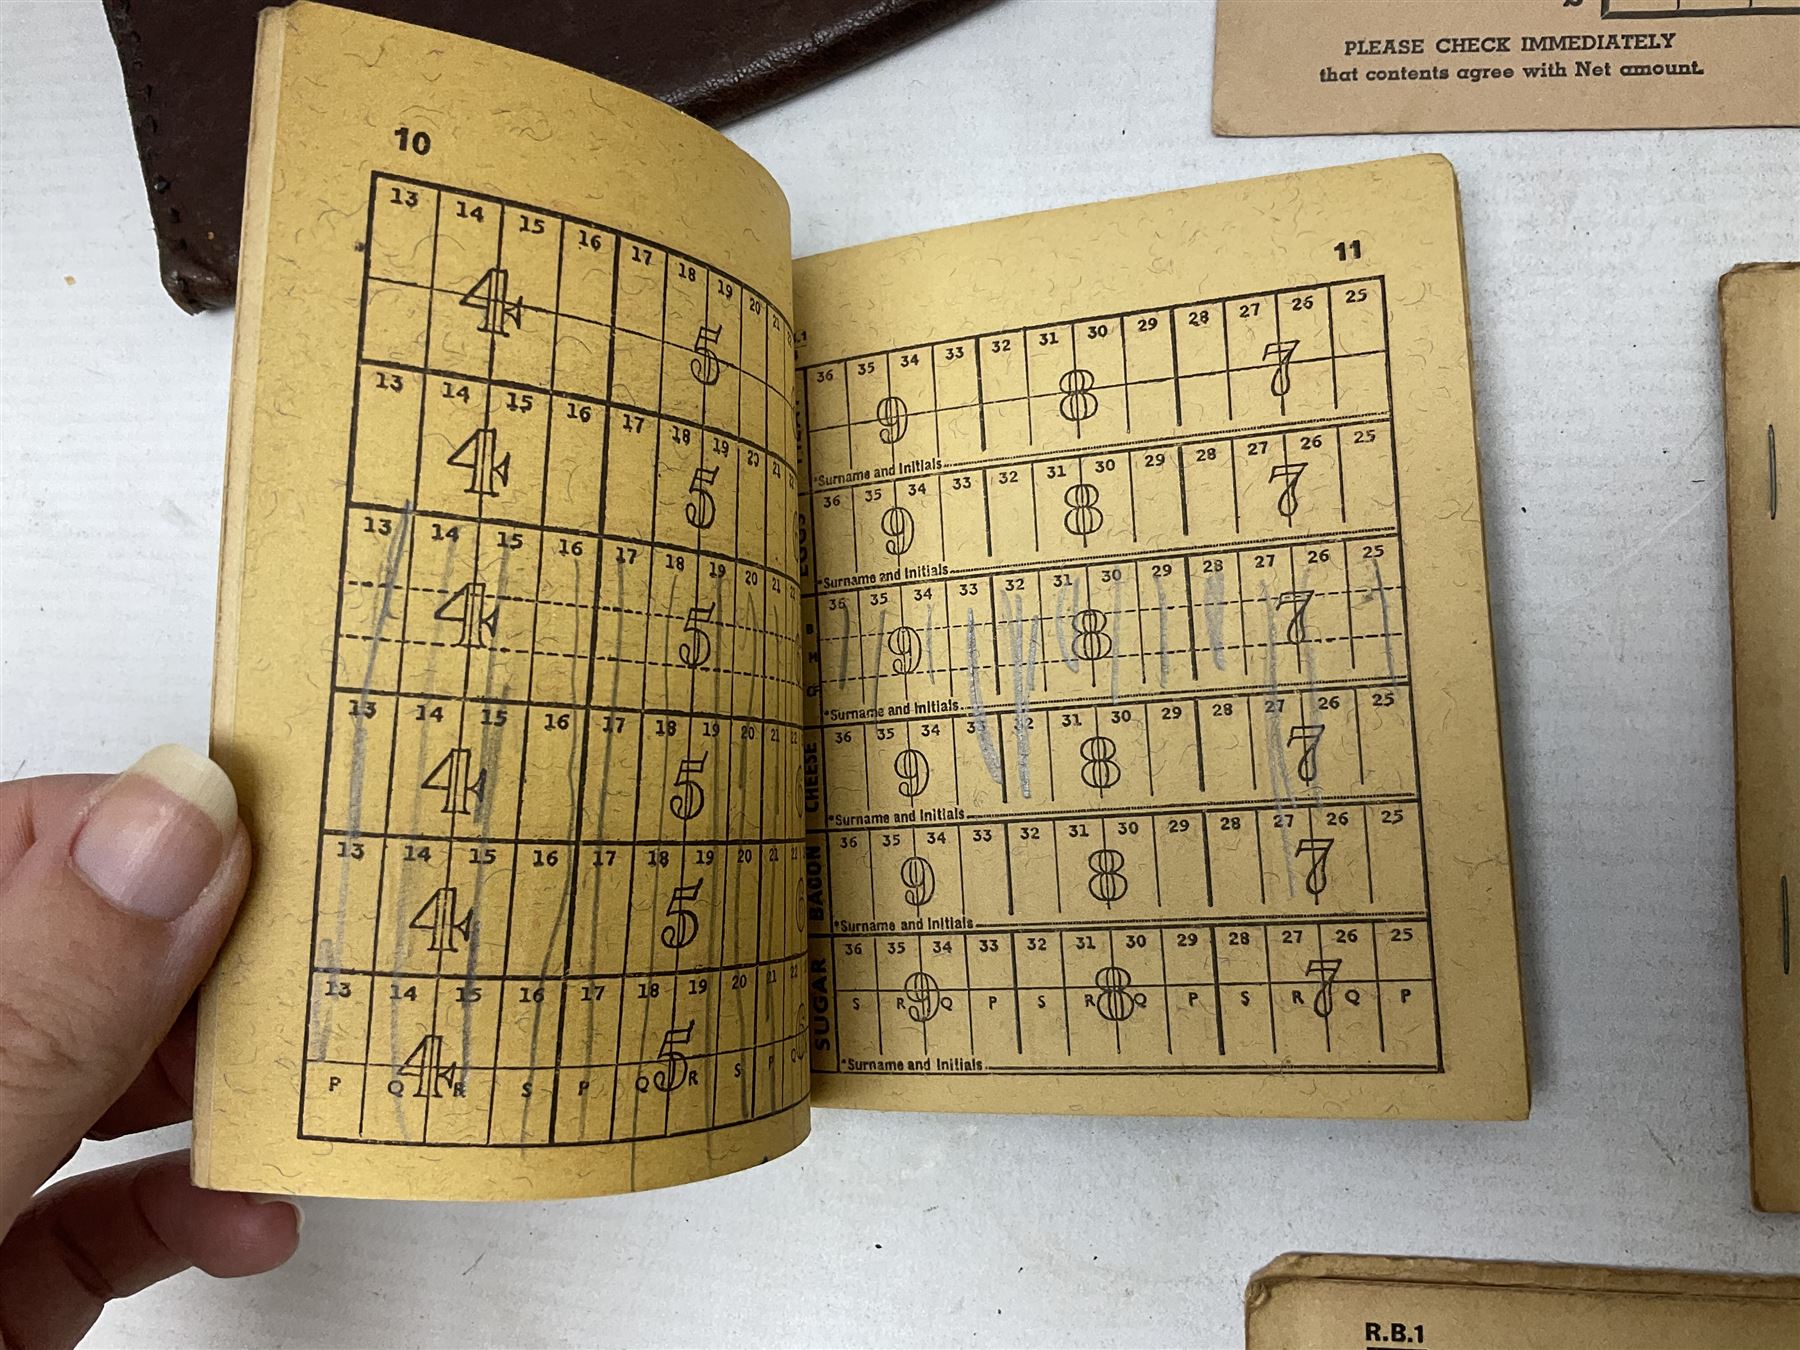 PLEASE CHECK IMMEDIATELY
that contents agree with Net amount.
10
13 14 15 16 17 18 19 20 21
4 5
13 14 15 16 17 18 19 20 21 22
4 5
13 14 15 16 17 18 19 20 21 22
4 5
13 14 15 16 17 18 19 20 21 22
4 5 6
13 14 15 16 17 18 19 20 21 22
4 5 6
13 14 15 16 17 18 19 20 21 22
4 5 6
P Q R S P Q R S P Q
11
36 35 34 33 32 31 30 29 28 27 26 25
9 8 7
*Surname and Initials
EGGS
36 35 34 33 32 31 30 29 28 27 26 25
9 8 7
*Surname and Initials
36 35 34 33 32 31 30 29 28 27 26 25
B
H
CF
9 8 7
*Surname and Initials
CHEESE
36 35 34 33 32 31 30 29 28 27 26 25
9 8 7
*Surname and Initials
BACON
36 35 34 33 32 31 30 29 28 27 26 25
9 8 7
*Surname and Initials
SUGAR
36 35 34 33 32 31 30 29 28 27 26 25
9 8 7
S R Q P S R Q P S R Q P
*Surname and Initials
R.B.1